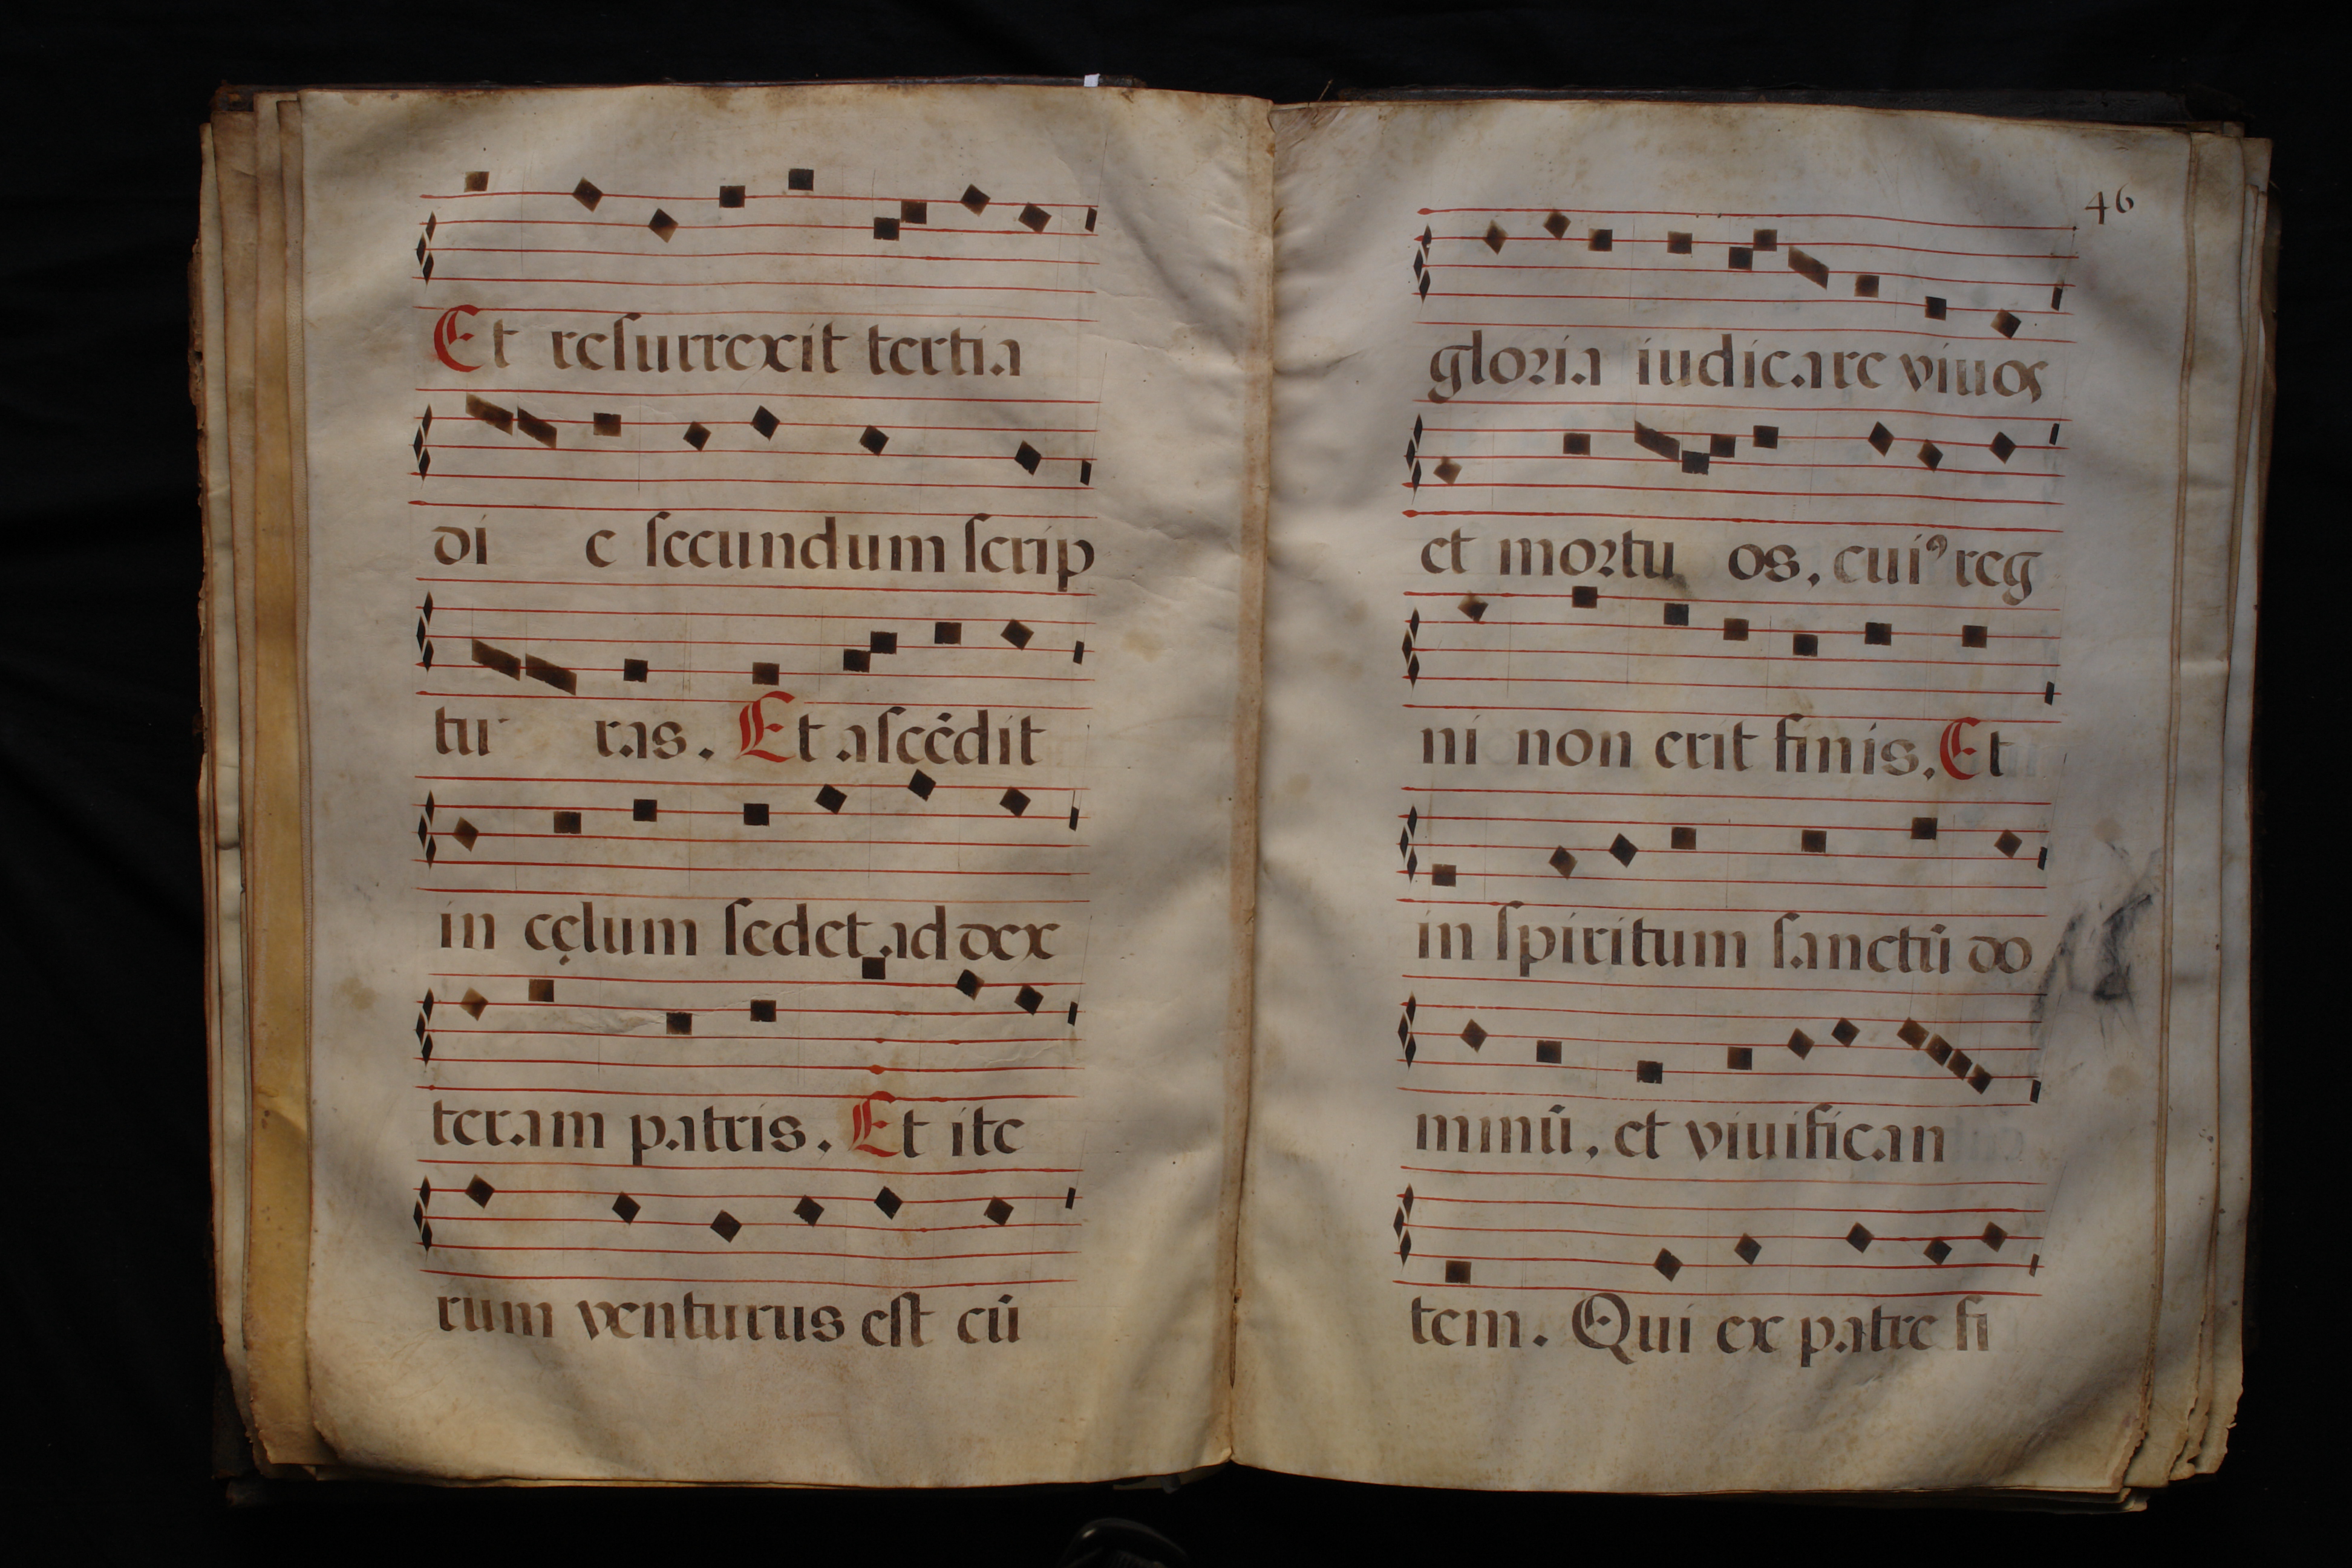 Et reſurrexit tertia
di e ſecundum ſcrip
tu ras. Et aſcēdit
in cęlum ſedet ad dex
teram patris. Et ite
rum venturus eſt cū
46
gloꝛia iudicare viuos
et moꝛtu os, cuiꝰ reg
ni non erit finis. Et
in ſpiritum ſanctū do
minū, et viuifican
tem. Qui ex patre fi